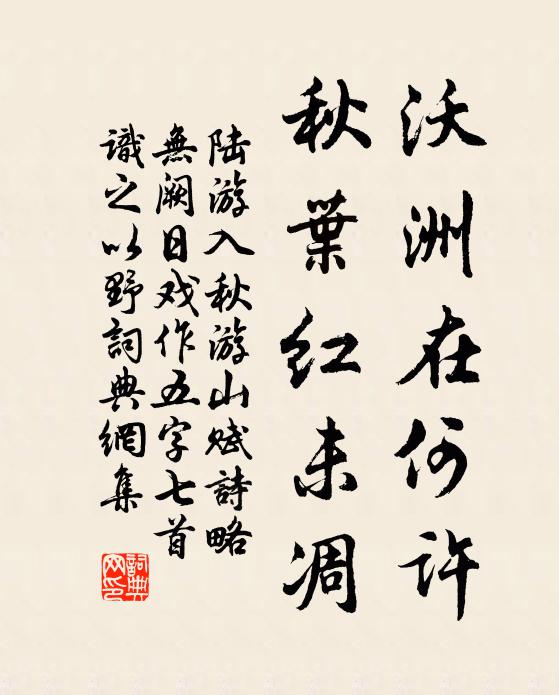 沃洲在何许
秋葉红未凋
陆游入秋游山赋詩略
無阙日戏作五字七首
識之以野詞典網集
詞典
网印